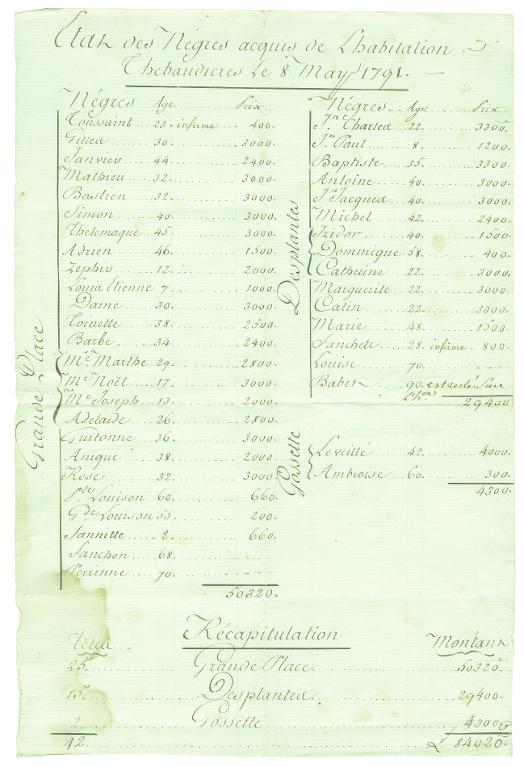 Etat des Négres acquis de L'habitation
Thebaudieres Le 8 May 1791.
Grande Place
Négres Age Prix
Toussaint 23 infirme 400
Gilles 30 3000
Janvier 44 2400
Mathieu 32 3000
Bastien 32 3000
Simon 40 3000
Thelemaque 45 3000
Adrien 46 1500
Zephir 12 2000
Louis Etienne 7 1000
Daine 30 3000
Toinette 38 2500
Barbe 34 2400
Me Marthe 29 2800
Me Noël 17 3000
Me Joseph 13 2000
Adelaide 26 2800
Guitonne 36 3000
Anique 38 2000
Rose 32 3000
Pte Louison 60 660
Gde Louison 55 200
Jannitte 2 660
Fanchon 68
Perrinne 70
50320
Desplantes
Négres Age Prix
Jn Charles 22 3300
Jn Paul 8 1200
Baptiste 35 3300
Antoine 40 3000
Jn Jacques 40 3000
Michel 42 2400
Izidor 40 1500
Dominique 58 400
Catherine 22 3000
Marguerite 22 3000
Catin 22 3000
Marie 48 1500
Fanchete 28 infirme 800
Louise 70
Babet 90
29400
Gossette
Leveillé 42 4000
Ambroise 60 300
4300
Récapitulation
Têtes Montant
25 Grande Place 50320
15 Desplantes 29400
2 Gossette 4300
42 £ 84020